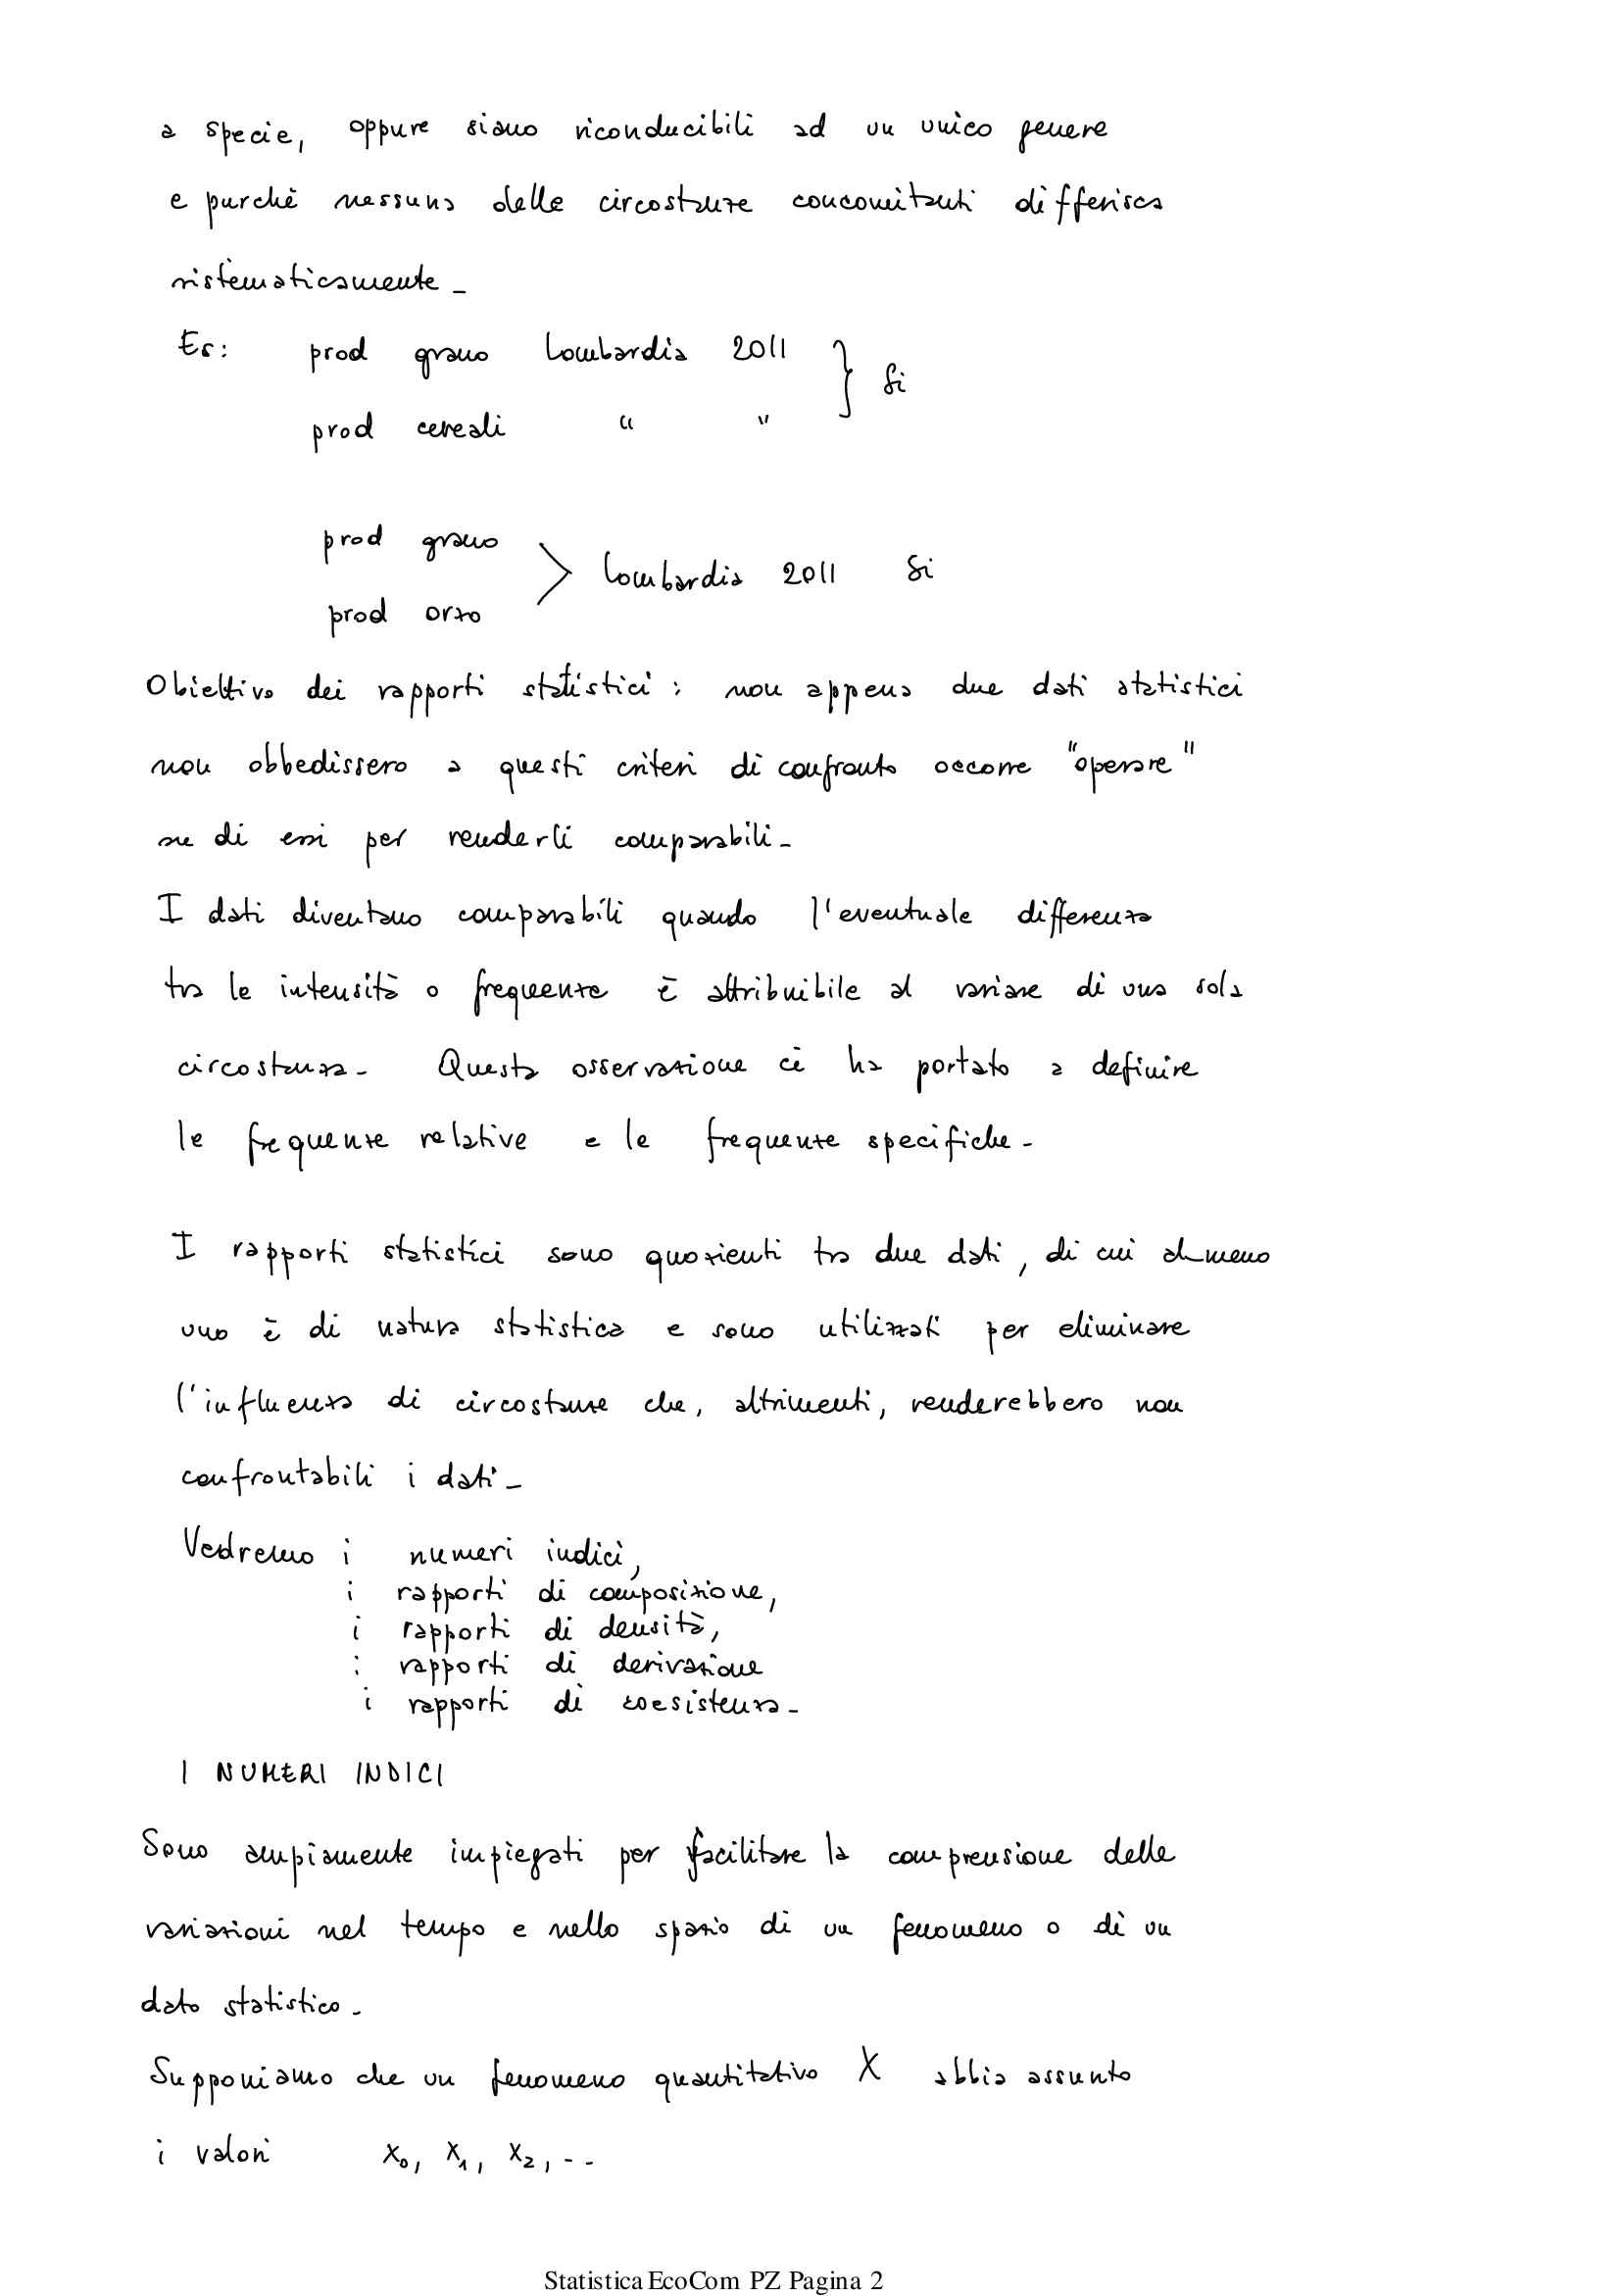 a specie, oppure siano riconducibili ad un unico genere
e purchè nessuna delle circostanze concomitanti differisca
sistematicamente -
Es: prod grano Lombardia 2011 } Si
prod cereali " "
prod grano
> Lombardia 2011 Si
prod orzo
Obiettivo dei rapporti statistici: non appena due dati statistici
non obbedissero a questi criteri di confronto occorre "operare"
su di essi per renderli comparabili -
I dati diventano comparabili quando l'eventuale differenza
tra le intensità o frequenze è attribuibile al variare di una sola
circostanza - Questa osservazione ci ha portato a definire
le frequenze relative e le frequenze specifiche -
I rapporti statistici sono quozienti tra due dati, di cui almeno
uno è di natura statistica e sono utilizzati per eliminare
l'influenza di circostanze che, altrimenti, renderebbero non
confrontabili i dati -
Vedremo i numeri indici,
i rapporti di composizione,
i rapporti di densità,
i rapporti di derivazione
i rapporti di coesistenza -
I NUMERI INDICI
Sono ampiamente impiegati per facilitare la comprensione delle
variazioni nel tempo e nello spazio di un fenomeno o di un
dato statistico -
Supponiamo che un fenomeno quantitativo X abbia assunto
i valori x₀, x₁, x₂, --
Statistica EcoCom PZ Pagina 2